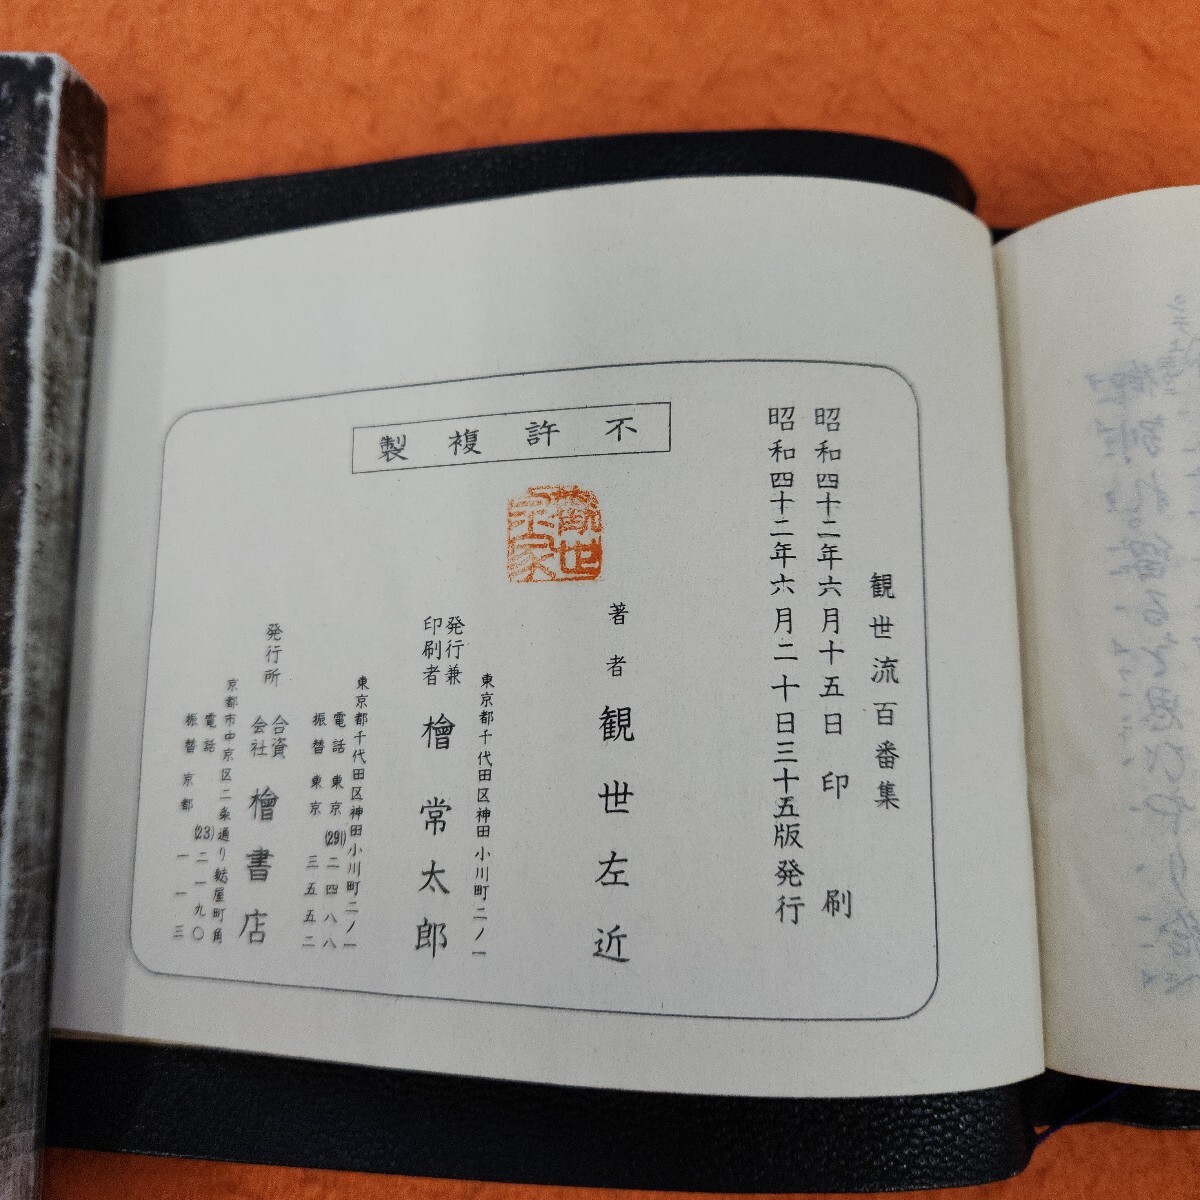 観世流百番集
昭和四十二年六月十五日 印 刷
昭和四十二年六月二十日三十五版発行
不許複製
著者 観世左近
東京都千代田区神田小川町二ノ一
発行兼
印刷者 檜常太郎
東京都千代田区神田小川町二ノ一
電話 東京(291)二四八八
振替 東京 三五五二
発行所 合資
会社 檜書店
京都市中京区二条通り麩屋町角
電話 (23)二一九〇
振替 京都 一一三